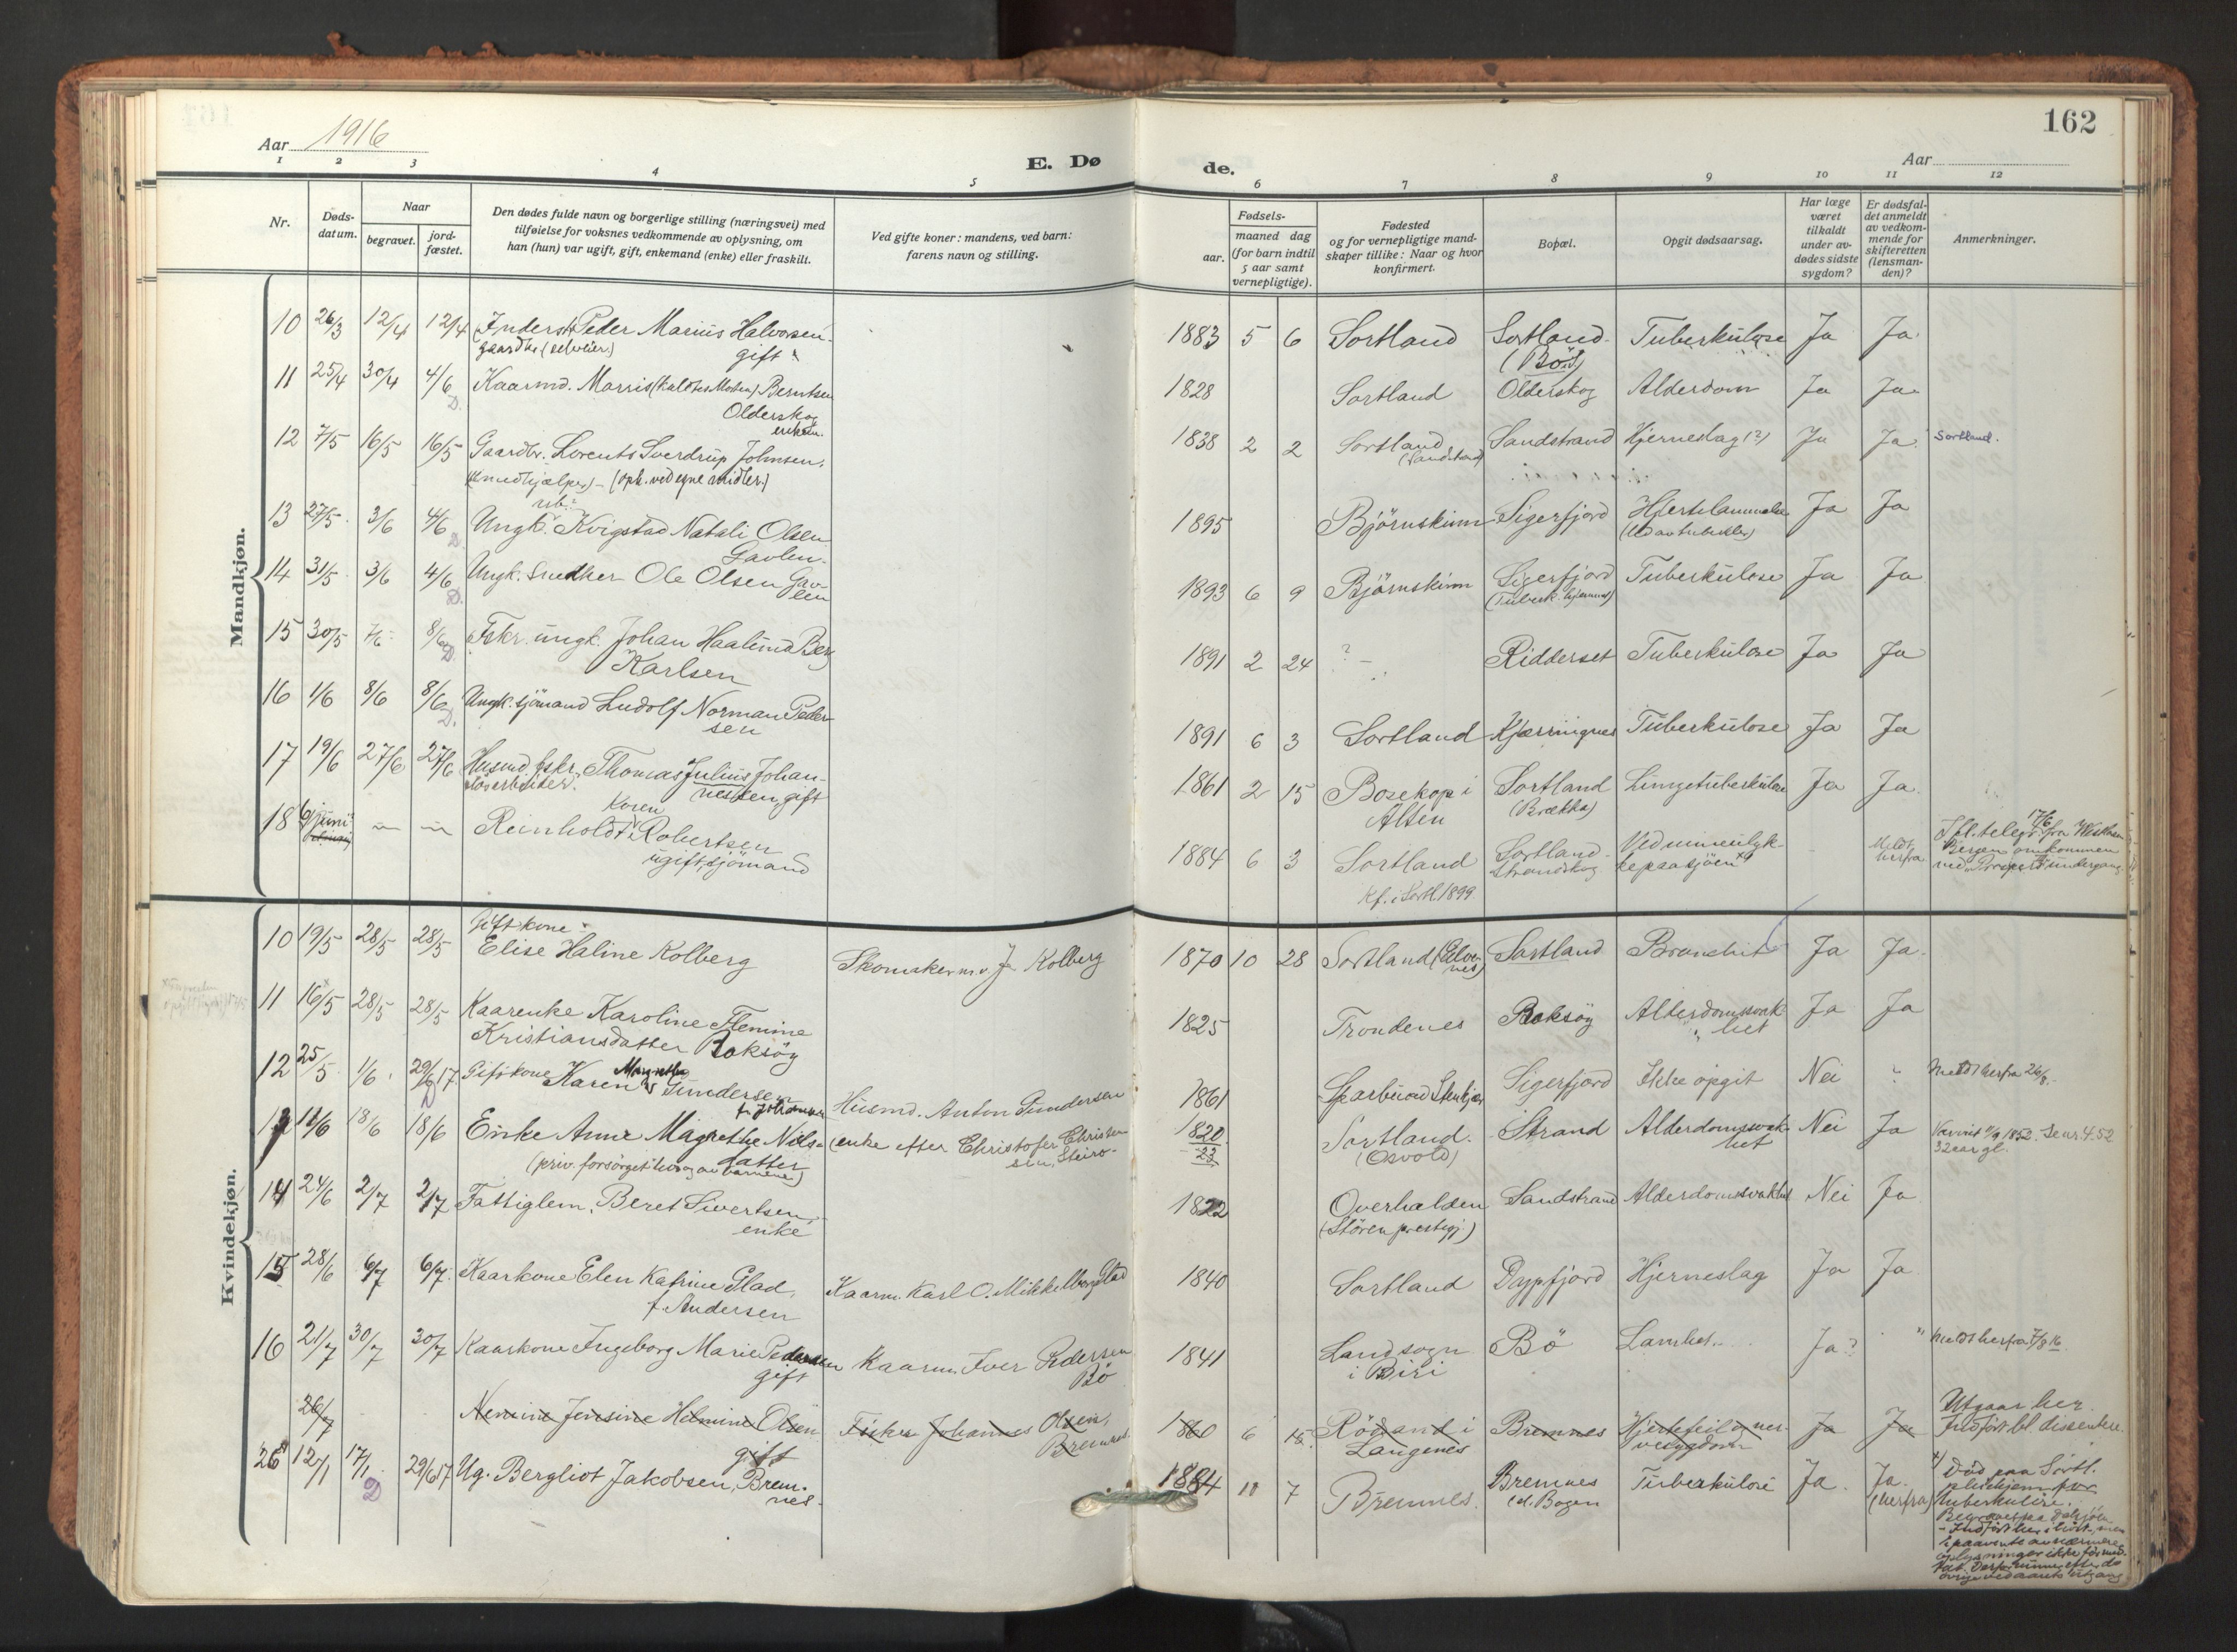 162
Aar 1916
E. Dø
de.
Aar
1 2 3 4 5 6 7 8 9 10 11 12
Nr.
Døds-
datum.
Naar
begravet.
jord-
fæstet.
Den dødes fulde navn og borgerlige stilling (næringsvei) med
tilføielse for voksnes vedkommende av oplysning, om
han (hun) var ugift, gift, enkemand (enke) eller fraskilt.
Ved gifte koner: mandens, ved barn:
farens navn og stilling.
Fødsels-
aar.
maaned dag
(for barn indtil
5 aar samt
vernepligtige).
Fødested
og for vernepligtige mand-
skaper tillike: Naar og hvor
konfirmert.
Bopæl.
Opgit dødsaarsag.
Har læge
været
tilkaldt
under av-
dødes sidste
sygdom?
Er dødsfal-
det anmeldt
av vedkom-
mende for
skifteretten
(lensman-
den)?
Anmerkninger.
Mandkjøn.
10 26/3 12/4 12/4 Inderst Peder Marius Halvorsen 1883 5 6 Sortland Sortland Tuberkulose Ja Ja
gaardbr. (selveier) gift (Bö)
11 25/4 30/4 4/6 Kaarmd. Morris (kaldtes Moten) Berntsen 1828 Sortland Olderskog Alderdom Ja Ja
D. Olderskog
enkem.
12 7/5 16/5 16/5 Gaardbr. Lorents Sverdrup Johnsen, 1838 2 2 Sortland Sandstrand Hjerneslag (?) Ja Ja Sortland.
(smedhjælper) – (oph. ved egne midler.) (Sandstrand)
13 27/5 3/6 4/6 Ungk. Kvigstad Natali Olsen 1895 Bjørnskinn Sigerfjord Hjertelammelse Ja Ja
D. Gavlen
14 31/5 3/6 4/6 Ungk. Snedker Ole Olsen Gav- 1893 6 9 Bjørnskinn Sigerfjord Tuberkulose Ja Ja
D. len (Tuberk. hjemmet)
15 30/5 8/6 Fskr. ungk. Johan Haalund Berg 1891 2 24 ? Ridderset Tuberkulose Ja Ja
D. Karlsen
16 1/6 8/6 8/6 Ungk. sjömand Ludolf Norman Peder- 1891 6 3 Sortland Kjærringnes Tuberkulose Ja Ja
D. sen
17 19/6 27/6 27/6 Husmd. fskr. Thomas Julius Johan- 1861 2 15 Bosekop i Sortland Lungetuberkulose Ja Ja
løsarbeider. nessen, gift Alten (Brækka)
18 9 juni – – Reinholdt Koren Robertsen 1884 6 3 Sortland Sortland Ved mineulyk- Meldt herfra I fl. telegr. 17/6 fra
ugift, sjömand Strandskog ke paa sjøen Bergen omkommen
Kf. i Sortl 1899 ved undergang
Kvindekjøn.
10 19/5 28/5 28/5 Gift kone
Elise Haline Kolberg Skomaker m.v. J. Kolberg 1870 10 28 Sortland Sortland Bronchit Ja Ja
11 16/5 28/5 28/5 Kaarenke Karoline Flemine 1825 Trondenes Boksøy Alderdomssvak- Ja Ja
Kristiansdatter Boksøy het
12 25/5 1/6 29/6 17 Gift kone Karen Margrethe Gundersen Husmd. Anton Gundersen 1861 Sparbu ved Stenkjær Sigerfjord Ikke opgit Nei " Meldt herfra 26/8.
D f. Johansen
13 11/6 18/6 18/6 Enke Anne Magrethe Niels- (enke efter Christofer Christen- 1820 Sortland. Strand Alderdomssvak- Nei Ja
datter sen, Steiro – 23 (Osvold) het 32 aar gl.
(priv. forsørget hos og av barnene)
14 24/6 2/7 2/7 Fattiglem. Beret Sivertsen, 1822 Overhalden Sandstrand Alderdomssvakhet Nei Ja
enke (Stören prestegj.)
15 28/6 6/7 6/7 Kaarkone Elen Katrine Glad, Kaarm. Karl O. Mikkelborg Glad 1840 Sortland Dypfjord Hjerneslag Ja Ja
f. Andersen
16 21/7 30/7 30/7 Kaarkone Ingeborg Marie Pedersen Kaarm. Iver Pedersen 1841 Landsogn Bö Lamhet Ja? " Meldt herfra 7/8 16
gift Bö i Biri
26/7 Nensine Jensine Helmine Olsen Fisker Johannes Olsen, 1860 6 15 Rödsand i Bremnes Hjertefeil og ner- Ja Ja Utgaar her.
gift Bremnes Langenes vesygdom Indført bl. dissentere
26 12/1 17/1 29/6 17 Ug. Bergliot Jakobsen, Brem- 1884 10 7 Bremnes. Bremnes Tuberkulose Ja. Ja. Död paa Sortl.
D nes. Bogen (herfra) pleiehjem for
tuberkuløse.